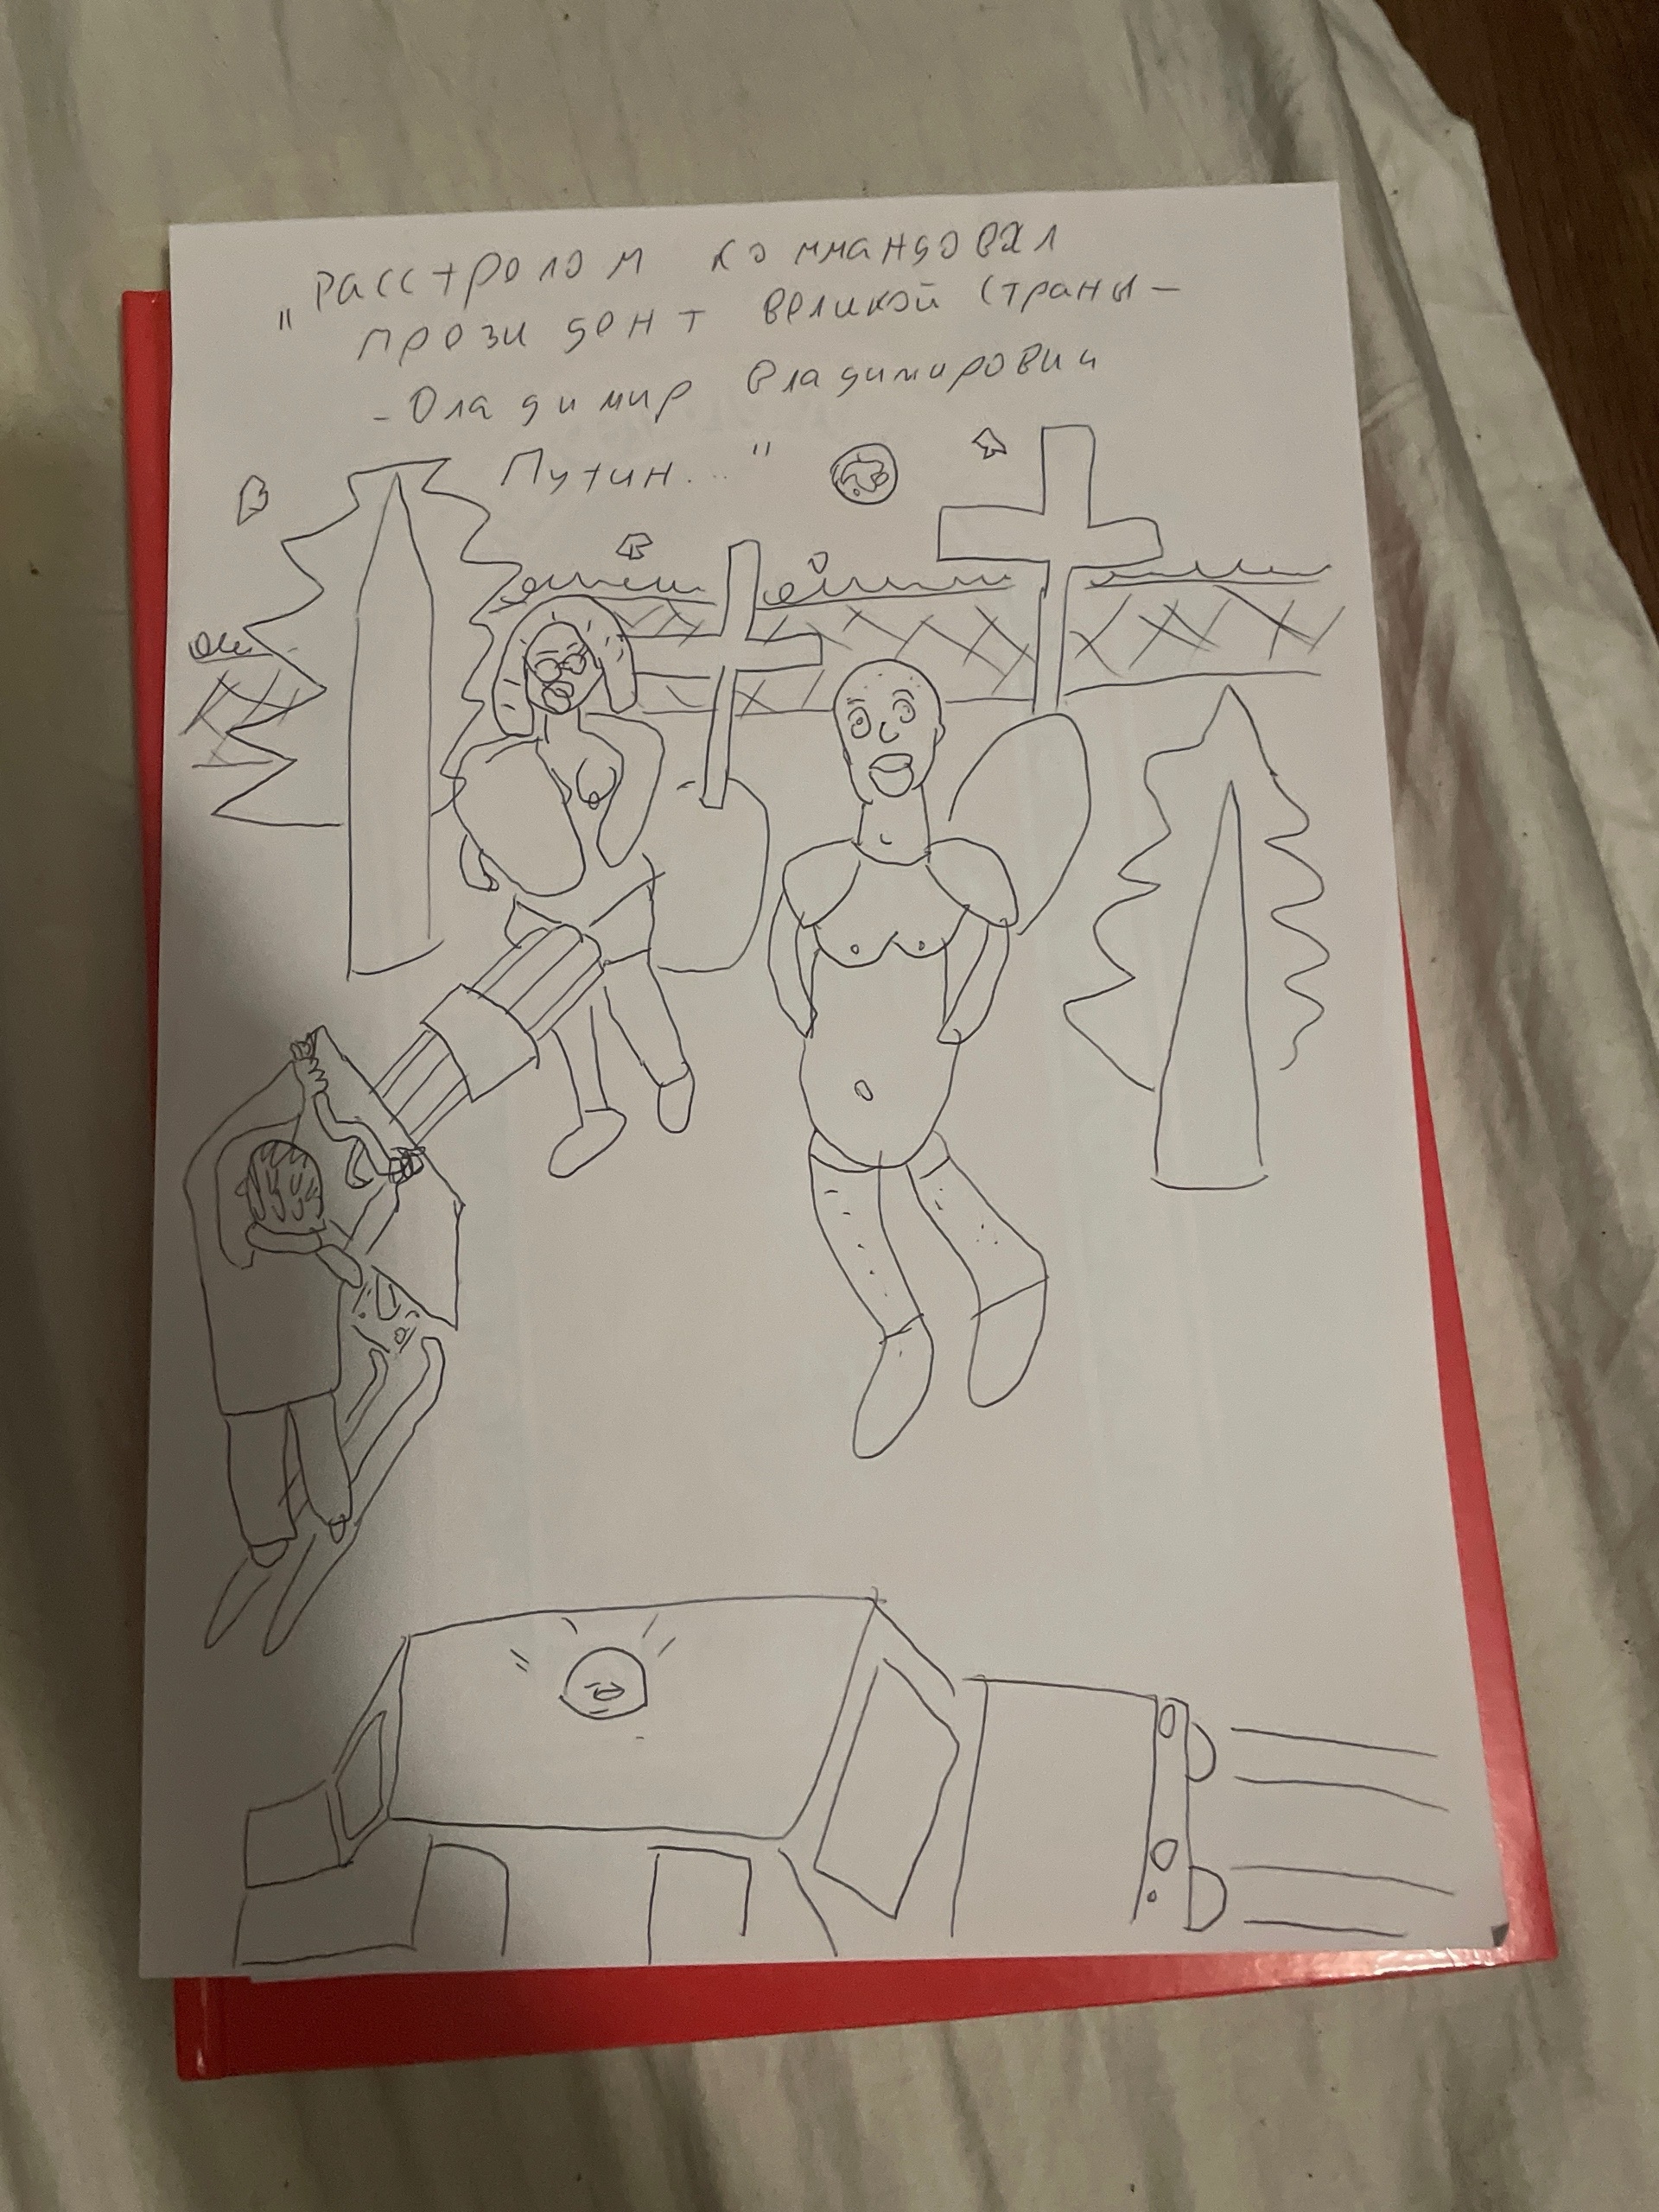 "Расстролом коммандовал
президент великой страны-
-Владимир Владимирович
Путин..."